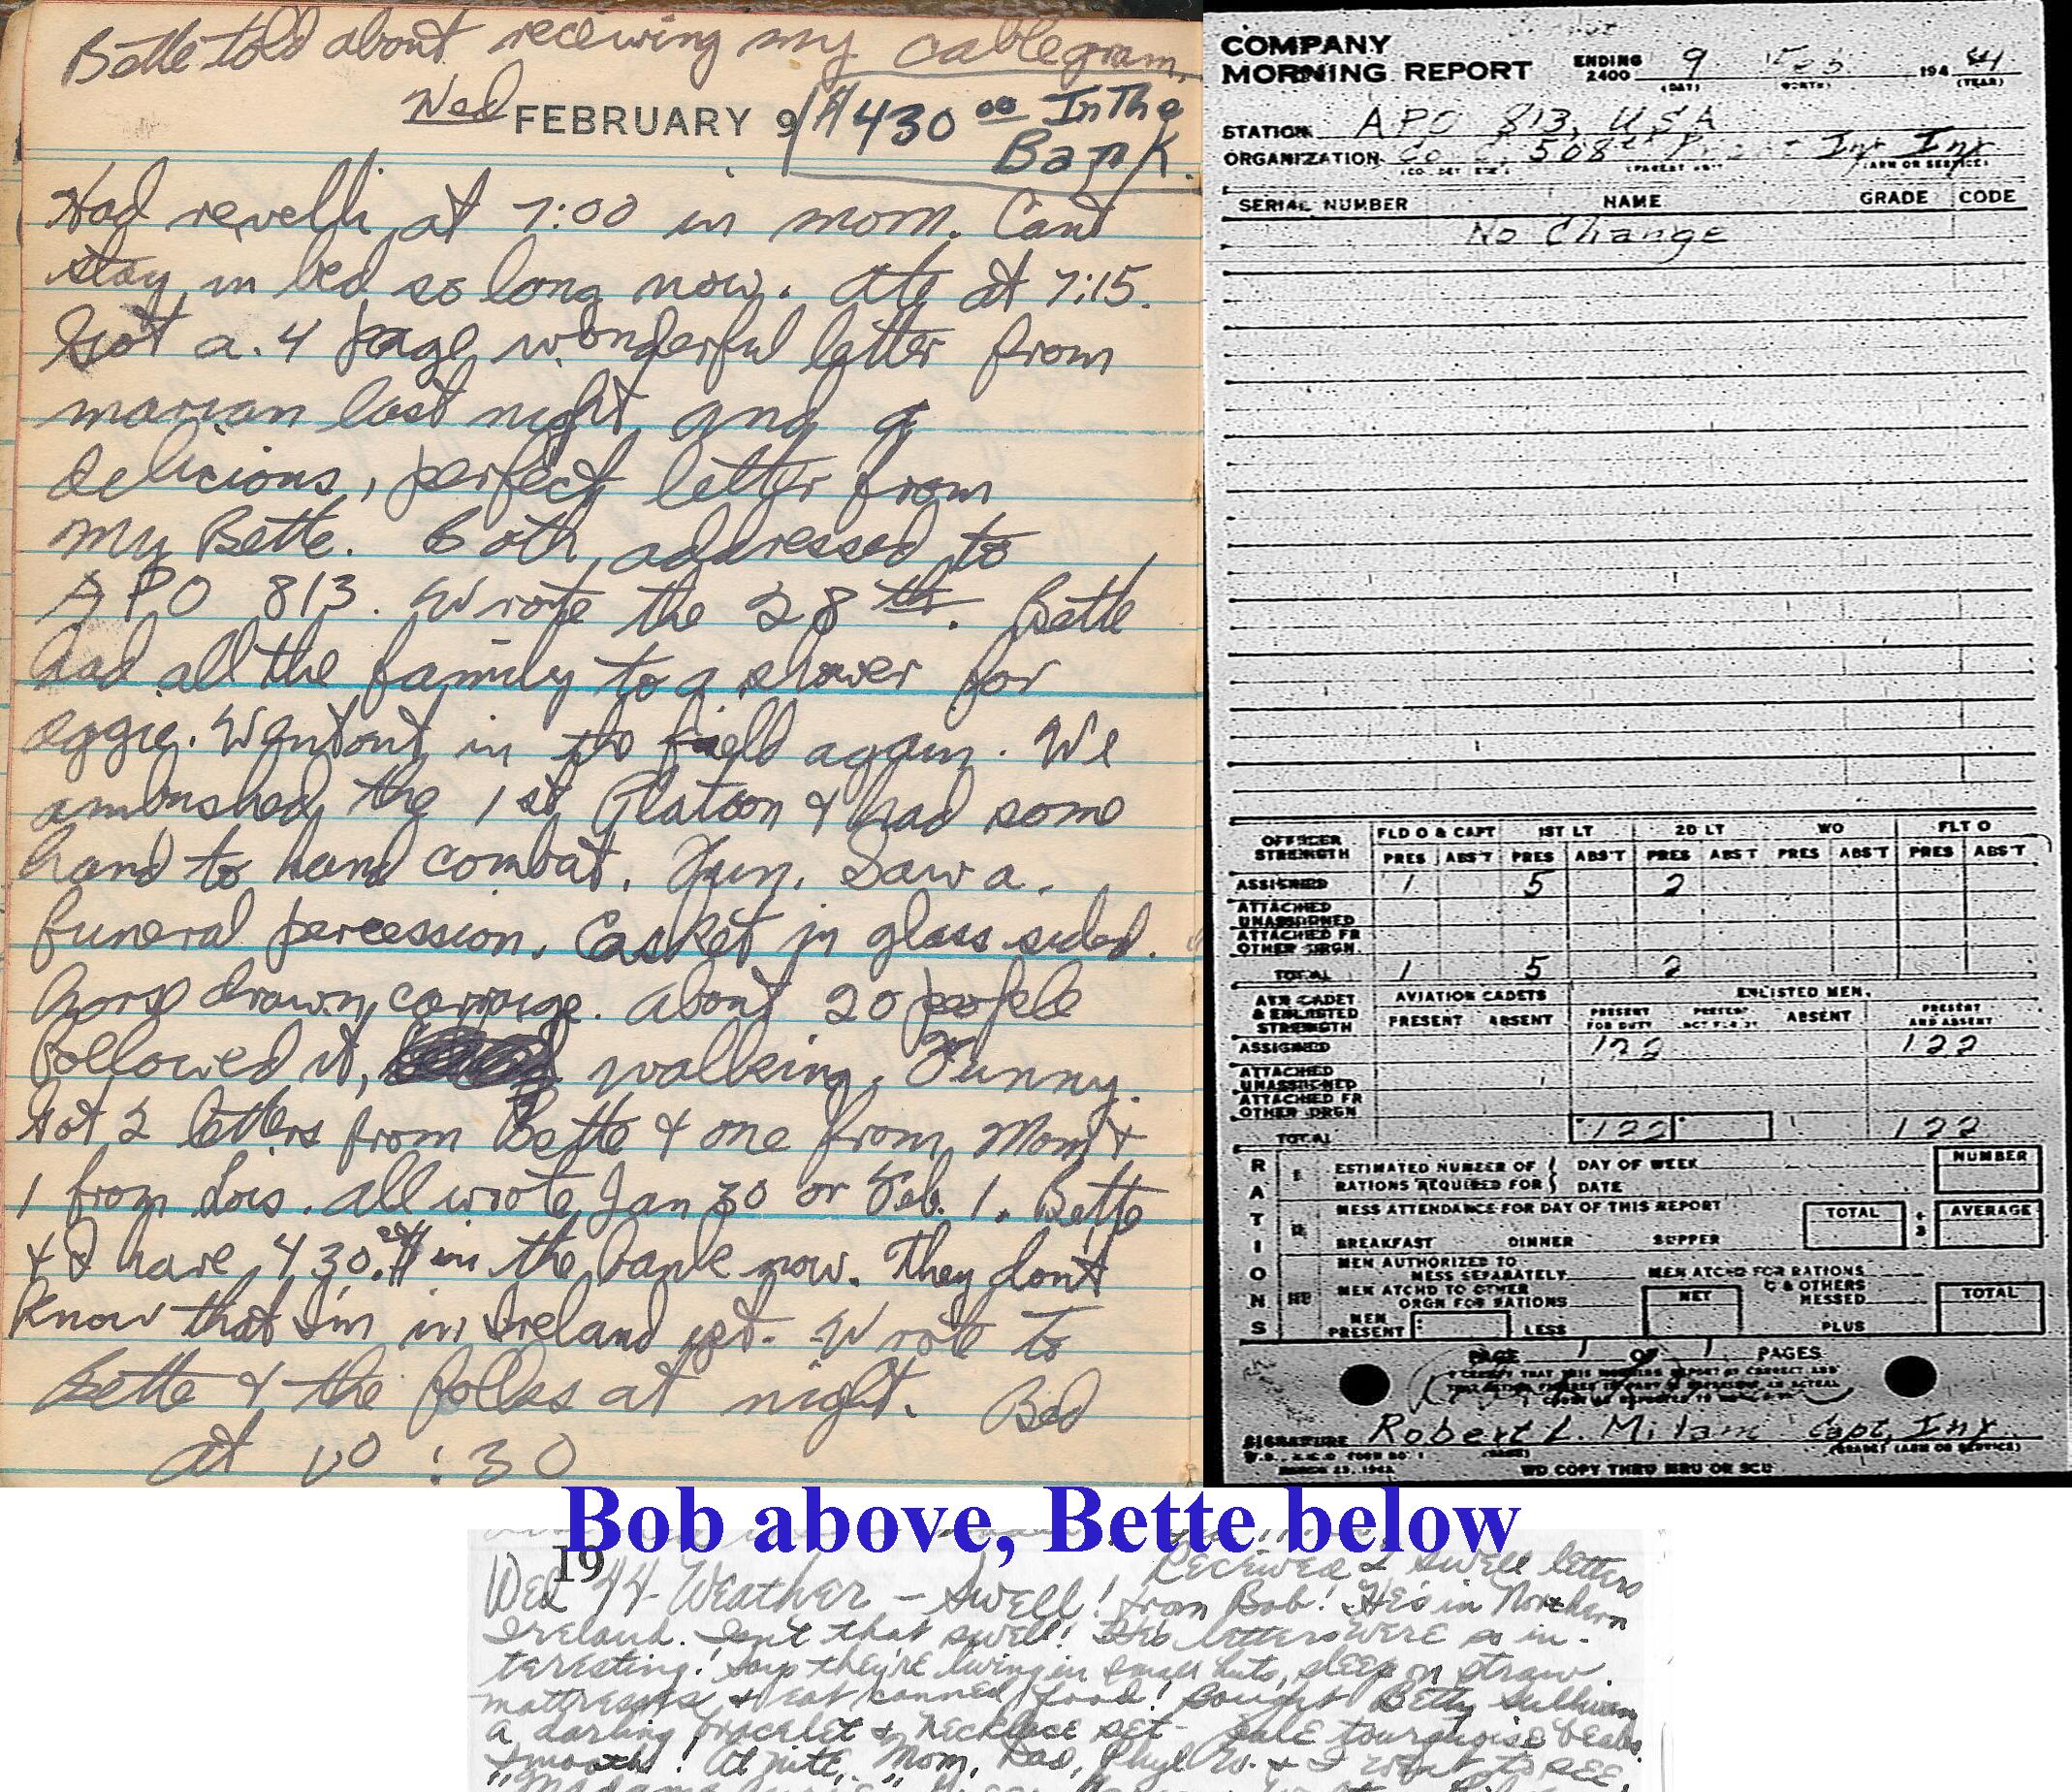 Bette told about receiving my cablegram.
Wed FEBRUARY 9 $430 00 In The
Bank.
Had revelli at 7:00 in morn. Cant
stay in bed so long now. Ate at 7:15.
Got a 4 page wonderful letter from
marian last night and a
delicious, perfect letter from
my Bette. Both addressed to
APO 813. Wrote the 28th. Bette
had all the family to a shower for
aggie. Went out in the field again. We
ambushed the 1st Platoon & had some
hand to hand combat. Fun. Saw a
funeral percession. Casket in glass sided
horse drawn carriage. About 20 people
followed it, walking. Funny.
Got 2 letters from Bette & one from Mom &
1 from Lois. All wrote Jan 30 or Feb. 1. Bette
& I have 430.00$ in the bank now. They dont
know that I'm in Ireland yet. Wrote to
Bette & the folks at night. Bed
at 10:30
COMPANY
MORNING REPORT ENDING 2400 9 1944
(DAY) (MONTH) (YEAR)
STATION APO 813, USA
ORGANIZATION Co 508th Inf Inf
(PARENT UNIT) (ARM OR SERVICE)
SERIAL NUMBER NAME GRADE CODE
No Change
OFFICER STRENGTH FLD O & CAPT 1ST LT 2D LT WO FLT O
PRES ABS'T PRES ABS'T PRES ABS'T PRES ABS'T PRES ABS'T
ASSIGNED 1 5 2
ATTACHED UNASSIGNED
ATTACHED FR OTHER ORGN
TOTAL 1 5 2
AVN CADET & ENLISTED STRENGTH AVIATION CADETS ENLISTED MEN
PRESENT ABSENT PRESENT FOR DUTY PRESENT NOT FOR DY ABSENT PRESENT AND ABSENT
ASSIGNED 122 122
ATTACHED UNASSIGNED
ATTACHED FR OTHER ORGN
TOTAL 122 122
RATIONS
I ESTIMATED NUMBER OF RATIONS REQUIRED FOR DAY OF WEEK DATE NUMBER
II MESS ATTENDANCE FOR DAY OF THIS REPORT TOTAL ÷ 3 AVERAGE
BREAKFAST DINNER SUPPER
III MEN AUTHORIZED TO MESS SEPARATELY MEN ATCHD FOR RATIONS
MEN ATCHD TO OTHER ORGN FOR RATIONS NET & OTHERS MESSED TOTAL
MEN PRESENT LESS PLUS
PAGE 1 OF 1 PAGES
I CERTIFY THAT THIS MORNING REPORT IS CORRECT AND
SIGNATURE Robert L. Milam Capt, Inf
(NAME) (GRADE) (ARM OR SERVICE)
WD COPY THRU MRU OR SCU
Bob above, Bette below
19
Received 2 swell letters
Wed 44 - Weather - Swell! from Bob! He's in Northern
Ireland. Isn't that swell! His letters were so in-
teresting! Says they're living in small huts, sleep on straw
mattresses & eat canned food! Bought Betty Sullivan
a darling bracelet & necklace set - pale tourquoise beads.
Smooth! At nite, Mom, Dad, Phyl W. & I went to see
"Madame